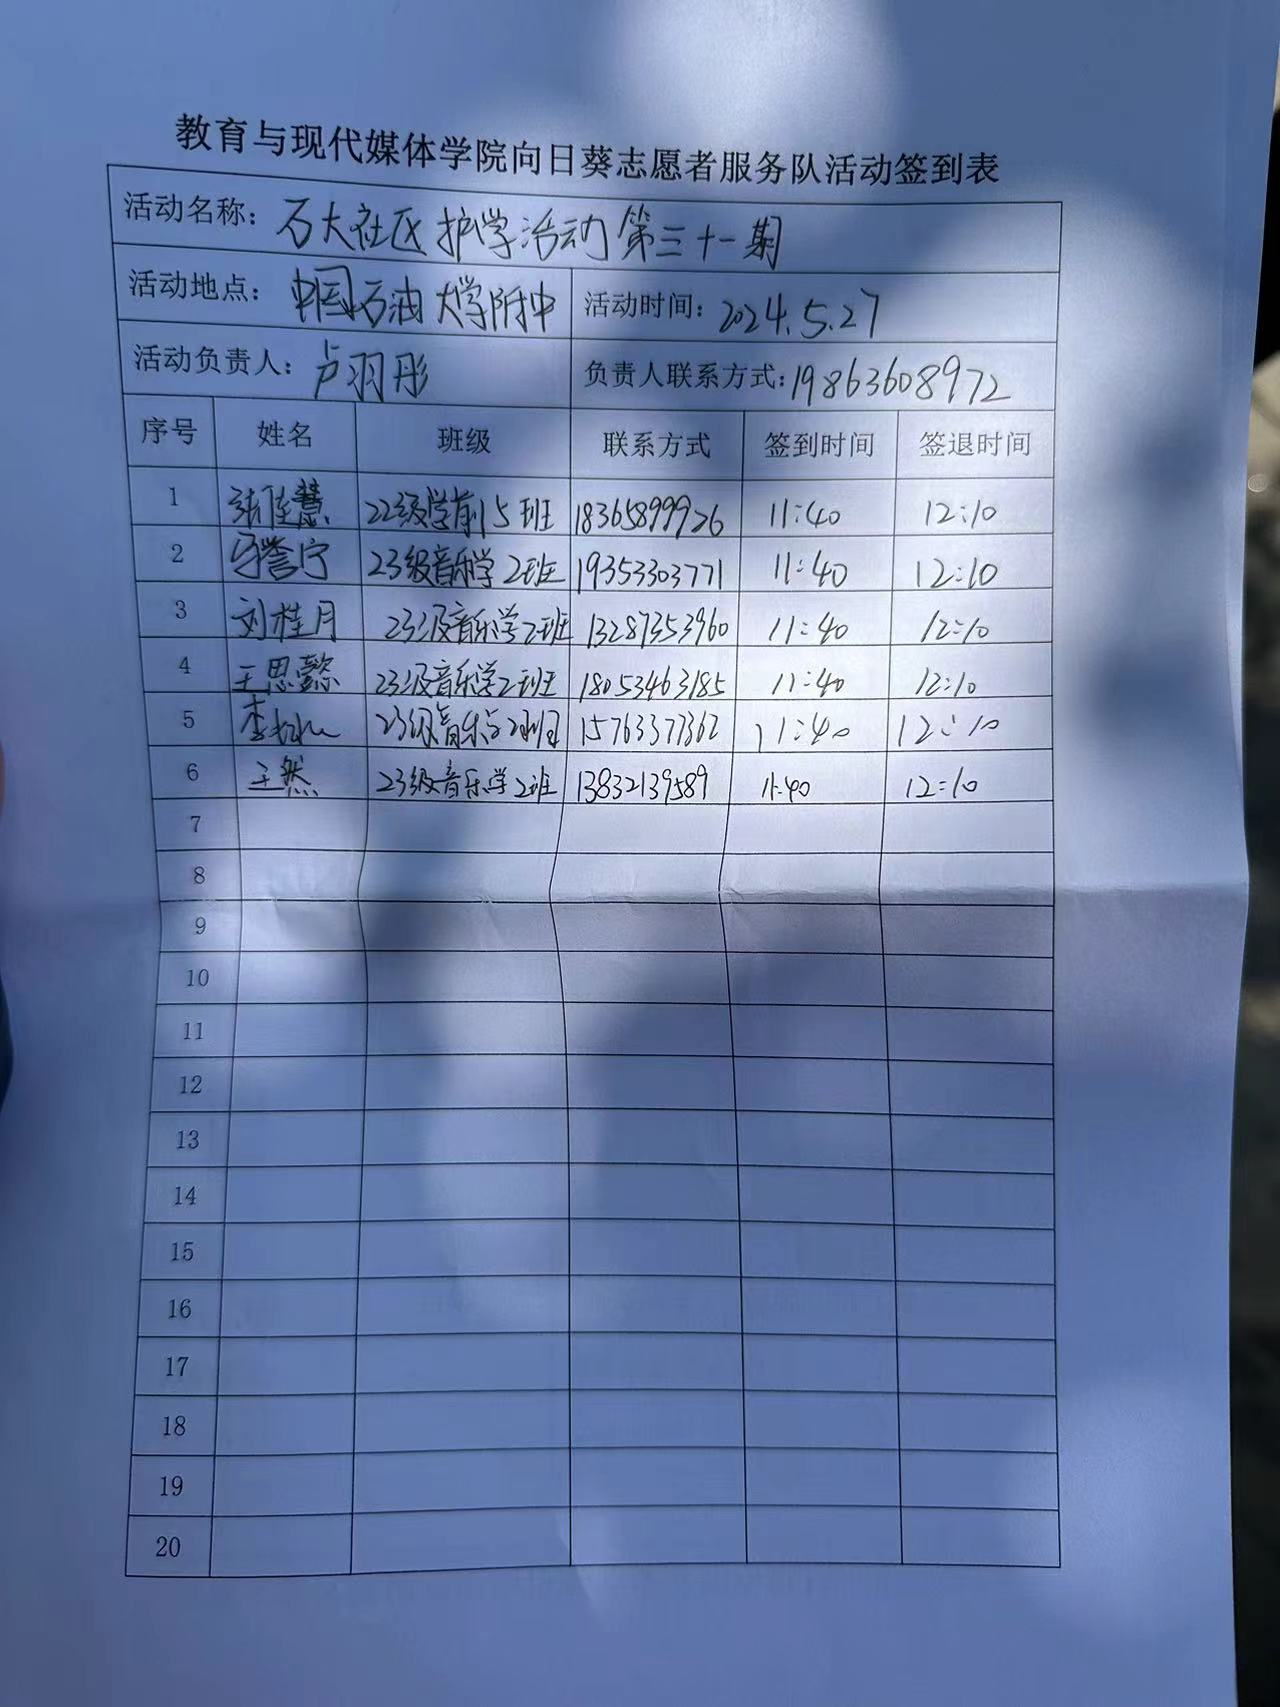 教育与现代媒体学院向日葵志愿者服务队活动签到表
活动名称：石大社区护学活动第三十一期
活动地点：中国石油大学附中 活动时间：2024.5.27
活动负责人：卢羽彤 负责人联系方式：19863608972
序号 姓名 班级 联系方式 签到时间 签退时间
1 张佳慧 22级学前15班 18365899926 11:40 12:10
2 誉宁 23级音乐学2班 19353303771 11:40 12:10
3 刘桂月 23级音乐学2班 13287353960 11:40 12:10
4 王思懿 23级音乐学2班 18053463185 11:40 12:10
5 李 23级音乐学2班 15763377362 11:40 12:10
6 王然 23级音乐学2班 13832139589 11:40 12:10
7
8
9
10
11
12
13
14
15
16
17
18
19
20